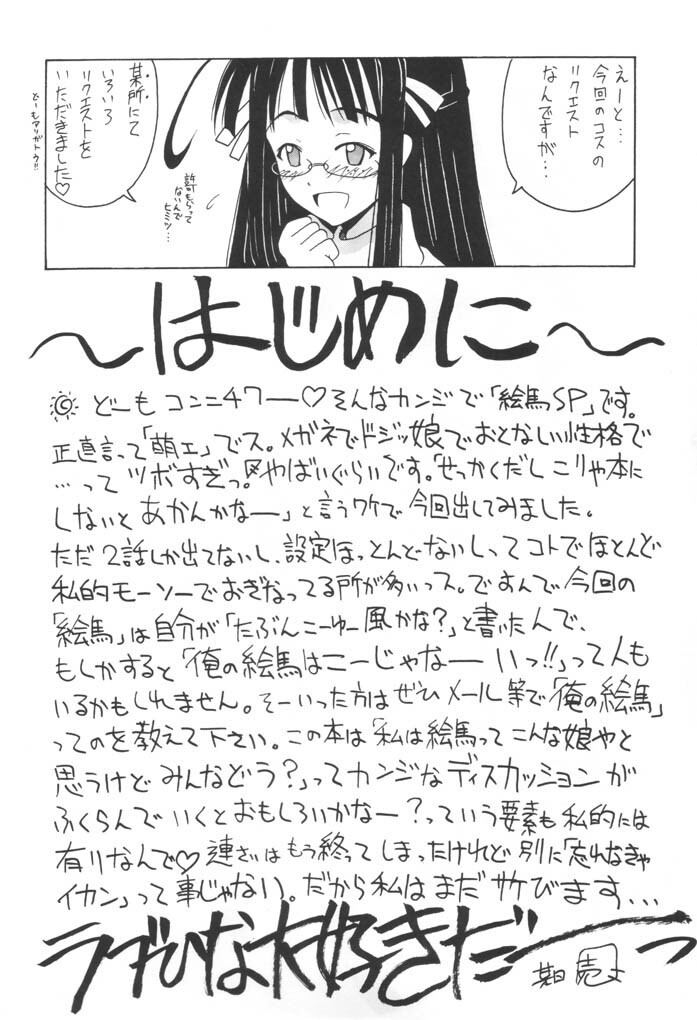 えーと…
今回のコスの
リクエスト
なんですが…
某所にて
いろいろ
リクエストを
いただきました♡
どーもアリガトウ!!
許可もらって
ないんで
ヒミツ…
～はじめに～
どーも コンニチワー♡そんなカンジで「絵馬SP」です。
正直言って「萌エ」でス。メガネでドジッ娘でおとなしい性格で
…って ツボすぎっ。〆やばいぐらいです。「せっかくだし こりゃ本に
しないと あかんかなー」と言うワケで 今回出してみました。
ただ 2話しか出てないし、設定ほっとんどないしって コトでほとんど
私的モーソーでおぎなってる所が多いっス。ですんで 今回の
「絵馬」は自分が「たぶんこーゆー風かな?」と書いたんで、
もしかすると「俺の絵馬はこーじゃなー いっ!!」って人も
いるかもしれません。そーいった方は ぜひ メール等で「俺の絵馬」
ってのを教えて下さい。この本は「私は絵馬って こんな娘やと
思うけど みんなどう?」ってカンジな ディスカッションが
ふくらんで いくと おもしろいかなー?っていう要素も 私的には
有りなんで♡ 連さいは もう終ってしまったけれど 別に「忘れなきゃ
イカン」って事じゃない。だから 私は まだ サケびます…
ラブひな大好きだーっ